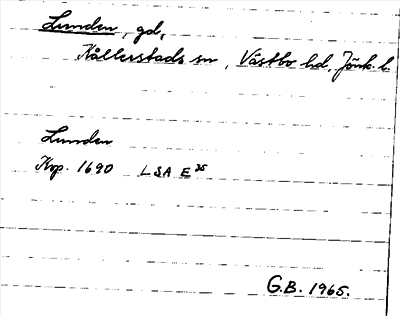 Lunden, gd,
Kållerstads sn, Västbo hd, Jönk. l.
Lunden
Krp. 1690 LSA E 35
G.B. 1965.